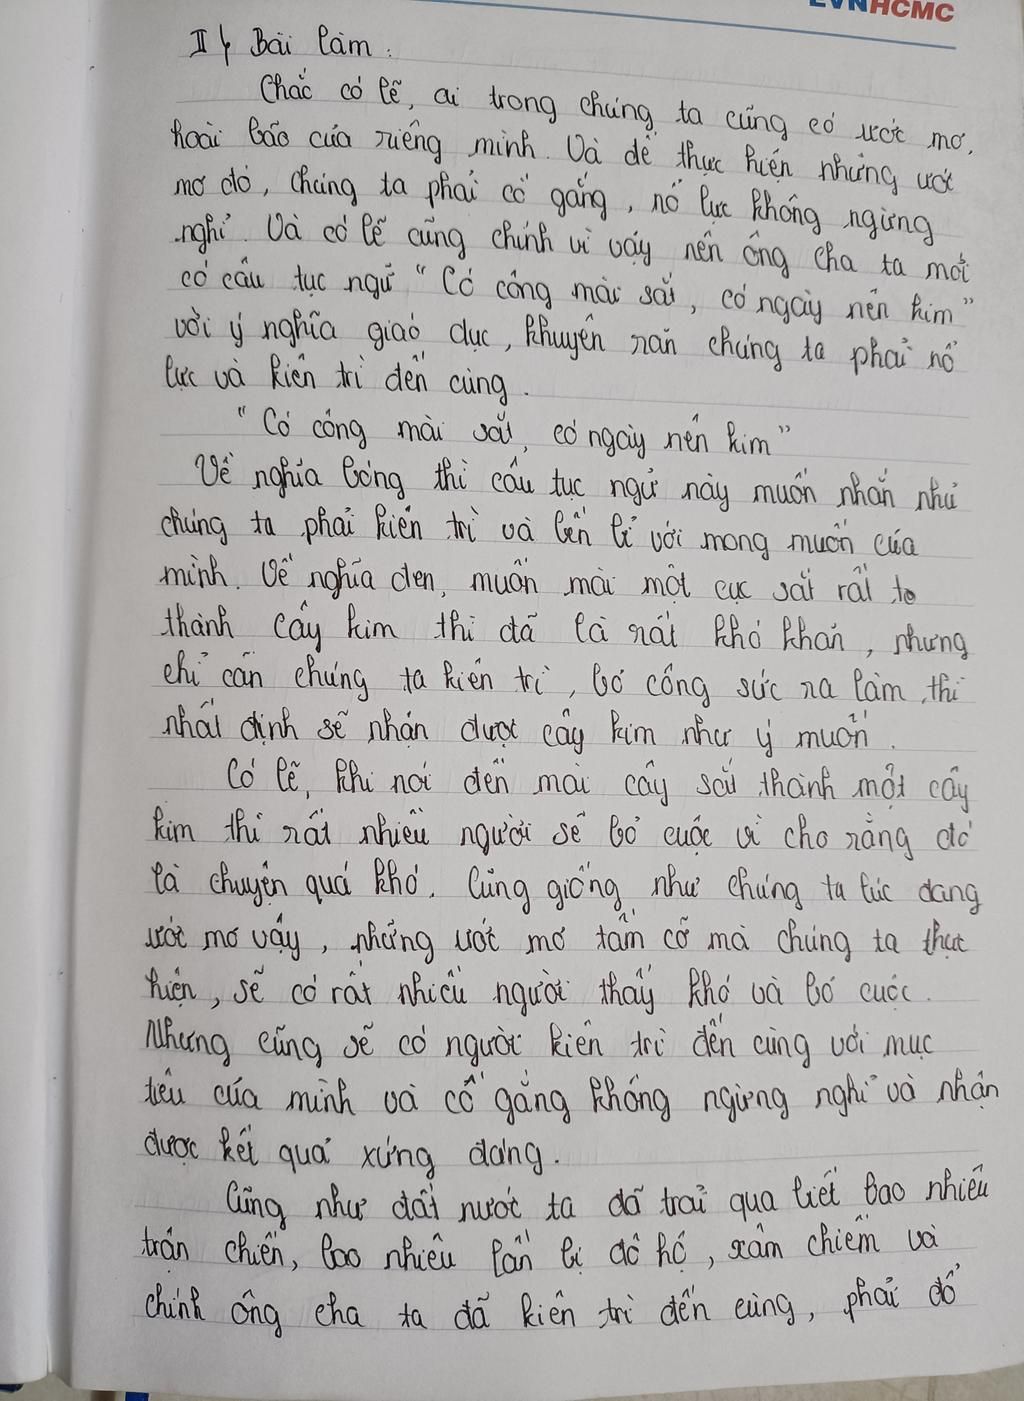 EVNHCMC
II/ Bài làm:
Chắc có lẽ, ai trong chúng ta cũng có ước mơ,
hoài bão của riêng mình. Và để thực hiện những ước
mơ đó, chúng ta phải cố gắng, nỗ lực không ngừng
nghỉ. Và có lẽ cũng chính vì vậy nên ông cha ta mới
có câu tục ngữ “Có công mài sắt, có ngày nên kim”
với ý nghĩa giáo dục, khuyên răn chúng ta phải nỗ
lực và kiên trì đến cùng.
“Có công mài sắt, có ngày nên kim”
Về nghĩa bóng thì câu tục ngữ này muốn nhắn nhủ
chúng ta phải kiên trì và bền bỉ với mong muốn của
mình. Về nghĩa đen, muốn mài một cục sắt rất to
thành cây kim thì đã là rất khó khăn, nhưng
chỉ cần chúng ta kiên trì, bỏ công sức ra làm thì
nhất định sẽ nhận được cây kim như ý muốn.
Có lẽ, khi nói đến mài cây sắt thành một cây
kim thì rất nhiều người sẽ bỏ cuộc vì cho rằng đó
là chuyện quá khó. Cũng giống như chúng ta lúc đang
ước mơ vậy, những ước mơ tầm cỡ mà chúng ta thực
hiện, sẽ có rất nhiều người thấy khó và bỏ cuộc.
Nhưng cũng sẽ có người kiên trì đến cùng với mục
tiêu của mình và cố gắng không ngừng nghỉ và nhận
được kết quả xứng đáng.
Cũng như đất nước ta đã trải qua biết bao nhiêu
trận chiến, bao nhiêu lần bị đô hộ, xâm chiếm và
chính ông cha ta đã kiên trì đến cùng, phải đổ